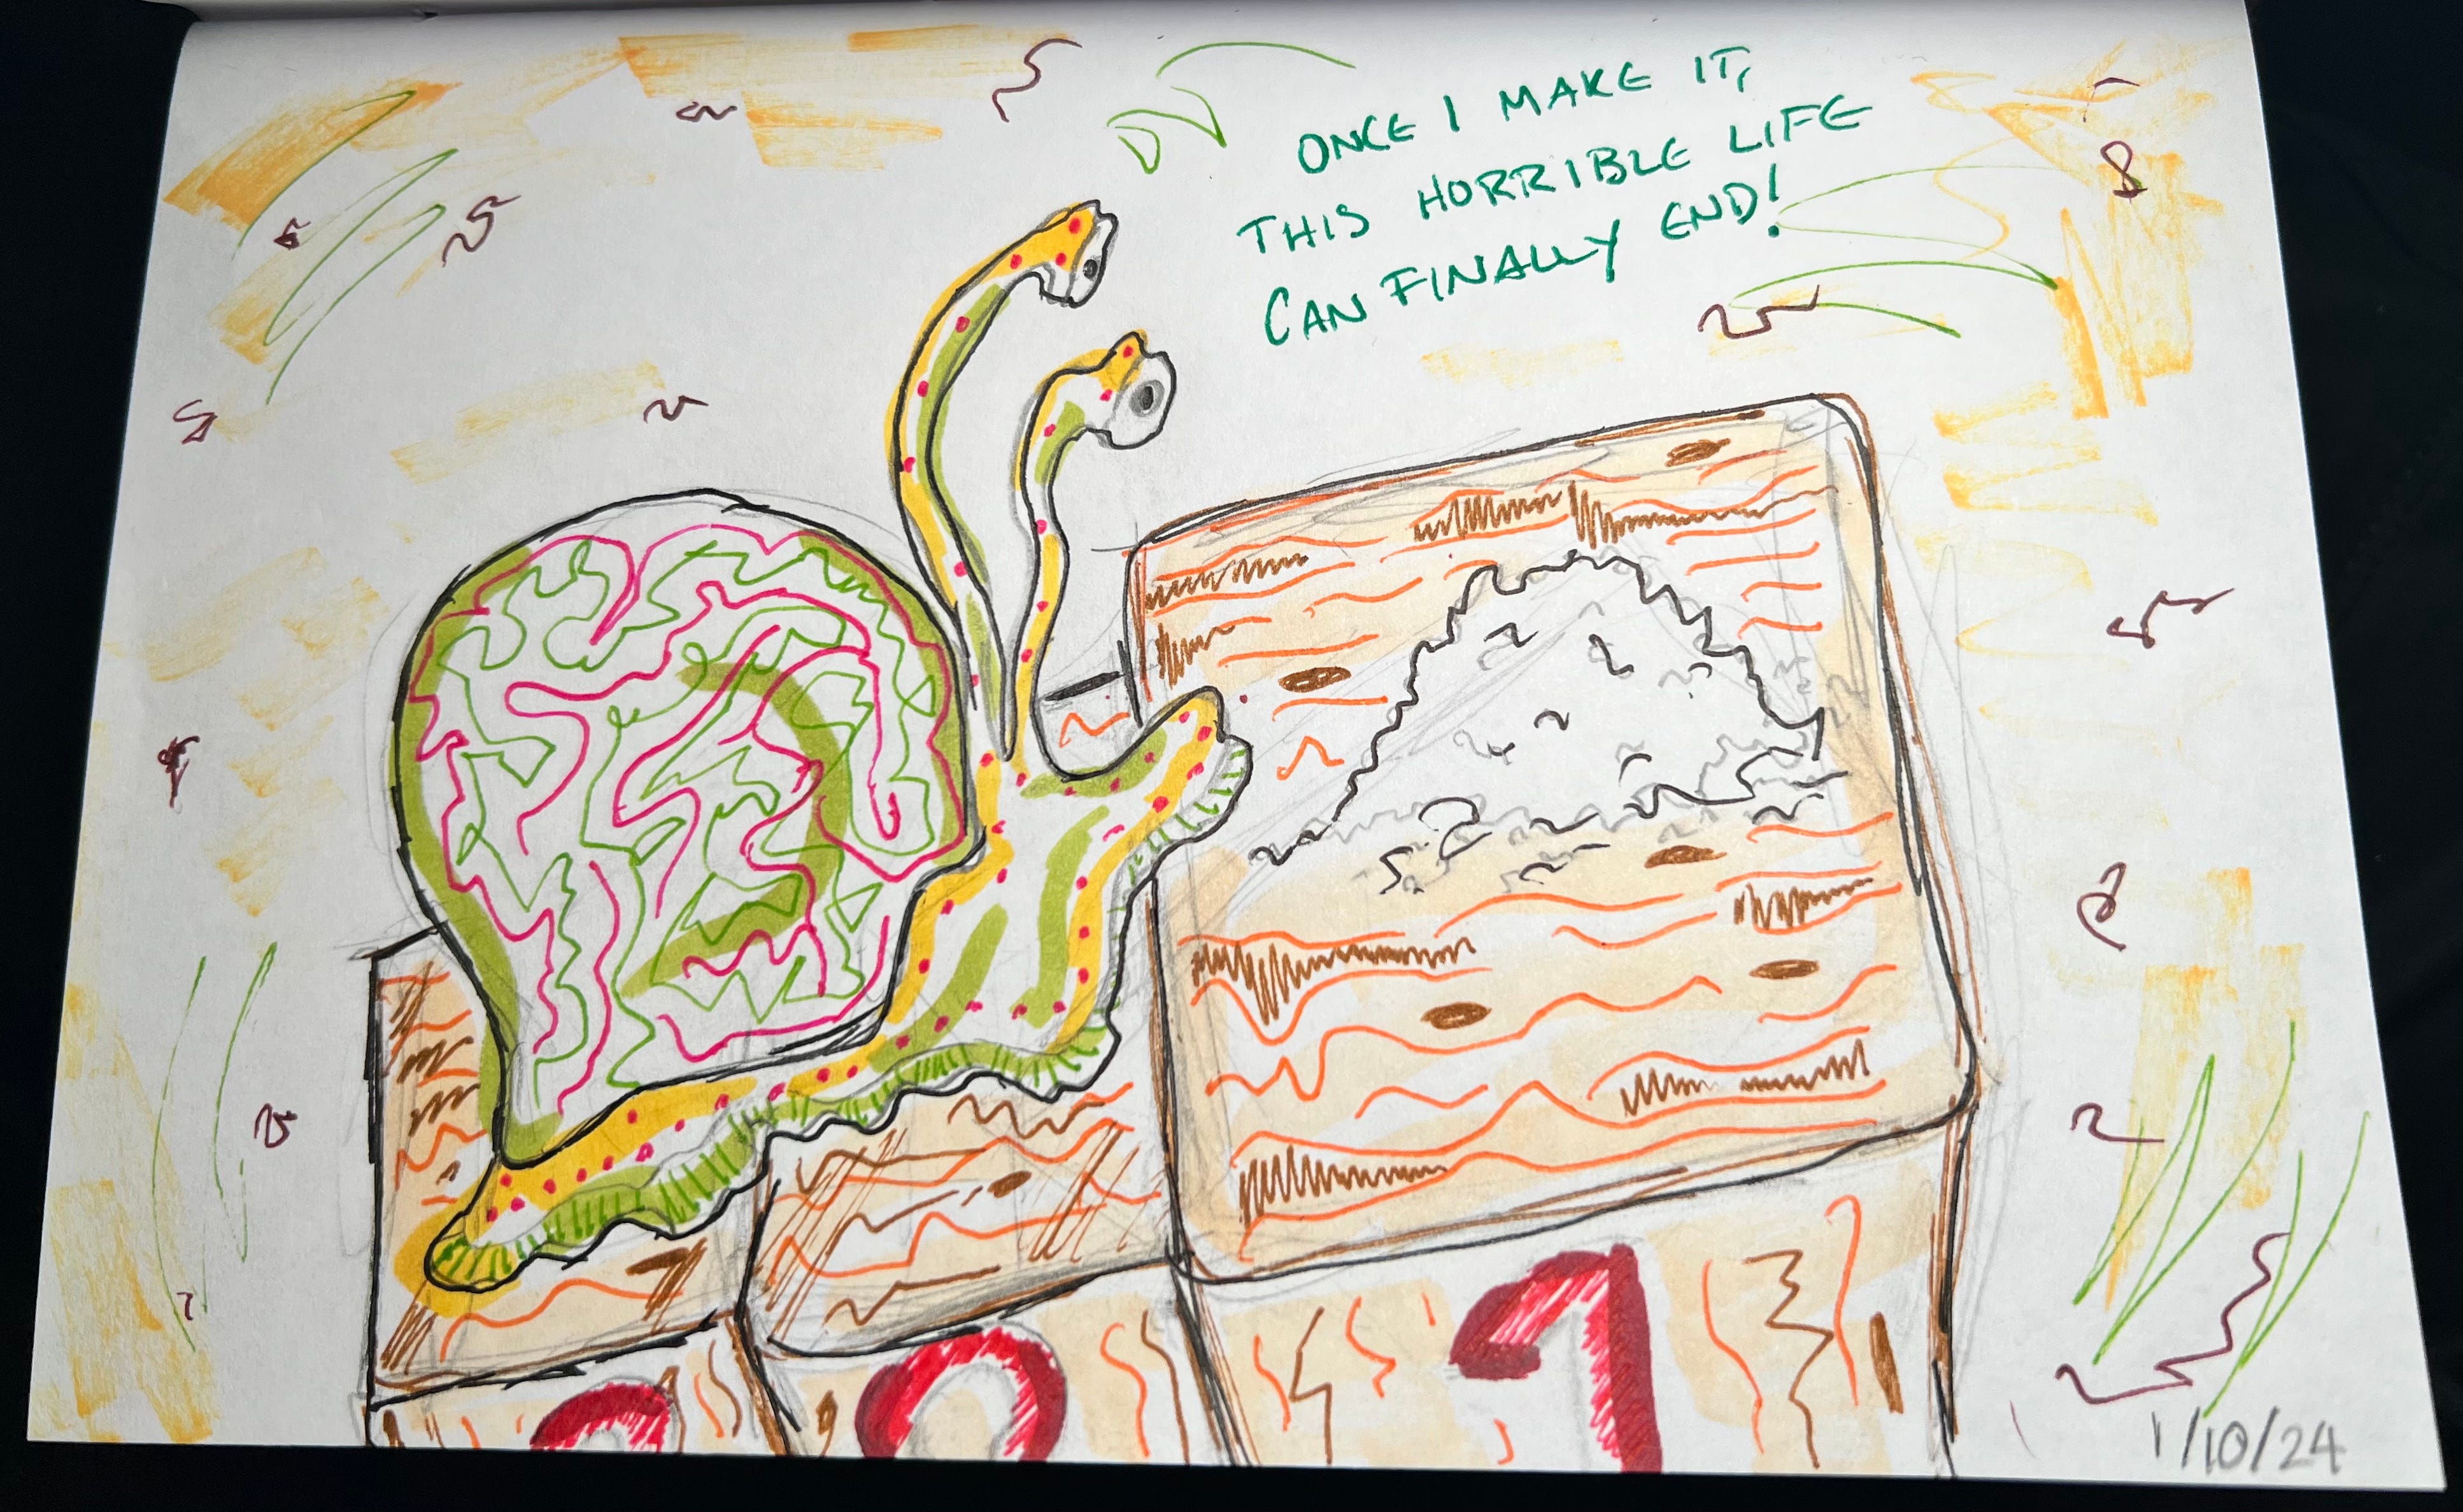 ONCE I MAKE IT,
THIS HORRIBLE LIFE
CAN FINALLY END!
1
1/10/24